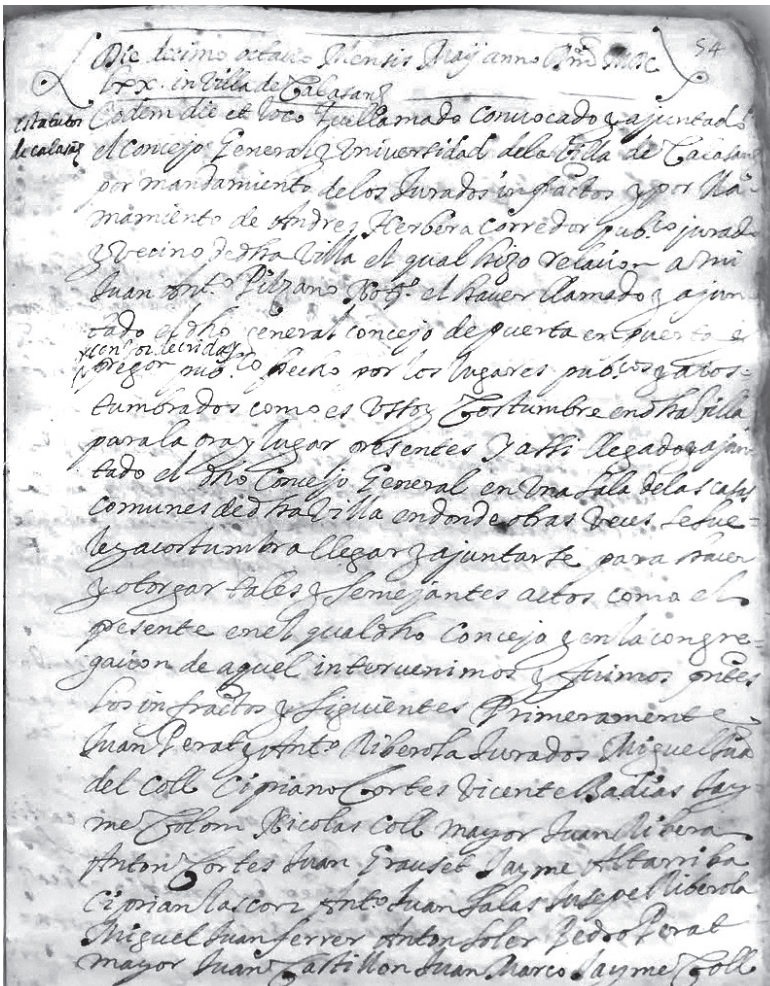 54
Die decimo octavo Mensis Maÿ anno Dñi MDC
lxx. in Villa de Calasanz
estatutos
de calasaz
Eodem die et loco q̃ llamado convocado y ajuntado
el Concejo General y Universidad de la Villa de Calasanz
por mandamiento de los Jurados infractos y por lla-
mamiento de Andres Herbera Corredor pub.co jurado
y vecino de dha Villa el qual hizo relacion a mi
Juan Ant.o Pilzano Not.o el haver llamado y ajun-
tado el dho general concejo de puerta en puerta
pregon pub.co hecho por los lugares pub.cos y acos-
tumbrados como es Usso y Costumbre en dha Villa
para la ora y lugar presentes Y assi llegado y ajun-
tado el dho Concejo General en Una Sala de las casas
comunes de dha Villa en donde otras Veces se sue-
le y acostumbra llegar y ajuntarse para hacer
y otorgar tales y semejantes actos como el
presente en el qual dho Concejo y en la congre-
gacion de aquel intervenimos y fuimos pntes
los infractos y siguientes Primeramente
Juan Perat y Ant.o Riberola Jurados Miguel Jua
del Coll Cipriano Cortes Vicente Badias Jay-
me Colom Nicolas Coll mayor Juan Ribera
Anton Cortes Juan Grauset Jayme Altarriba
Ciprian Lascorz Ant.o Juan Salas Jusepe Riberola
Miguel Juan ferrer Anton Soler Pedro Perat
mayor Juan Castillon Juan Marco Jayme Coll